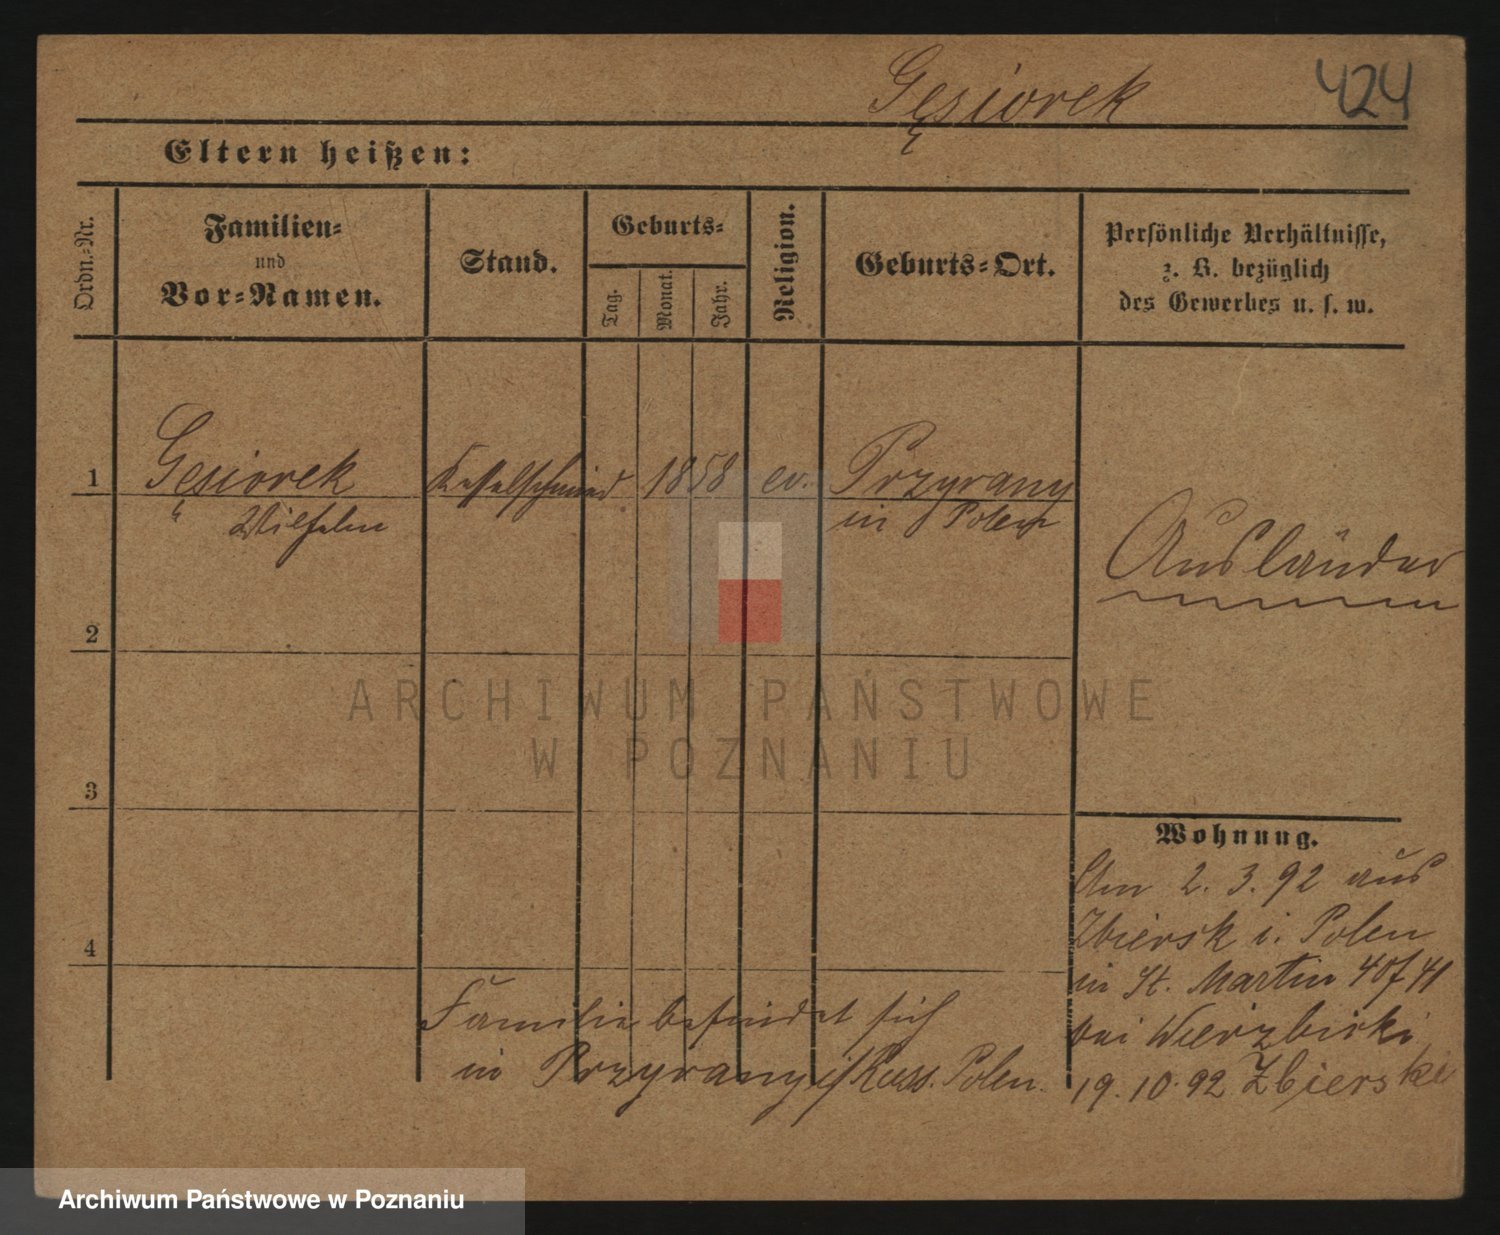 Gęsiorek
424
Eltern heißen:
Ordn.-Nr.
Familien-
und
Vor-Namen.
Stand.
Geburts-
Tag.
Monat.
Jahr.
Religion.
Geburts-Ort.
Persönliche Verhältnisse,
z. B. bezüglich
des Gewerbes u. s. w.
1
Gęsiorek Kesselschmied 1858 ev. Przyrany
Wilhelm in Polen
Ausländer
2
ARCHIWUM PAŃSTWOWE
W POZNANIU
3
Wohnung.
Am 2. 3. 92 aus
Zbiersk i. Polen
in St. Martin 40/41
bei Wierzbicki
19. 10. 92 Zbierske
4
Familie befindet sich
in Przyrany i/Russ. Polen.
Archiwum Państwowe w Poznaniu